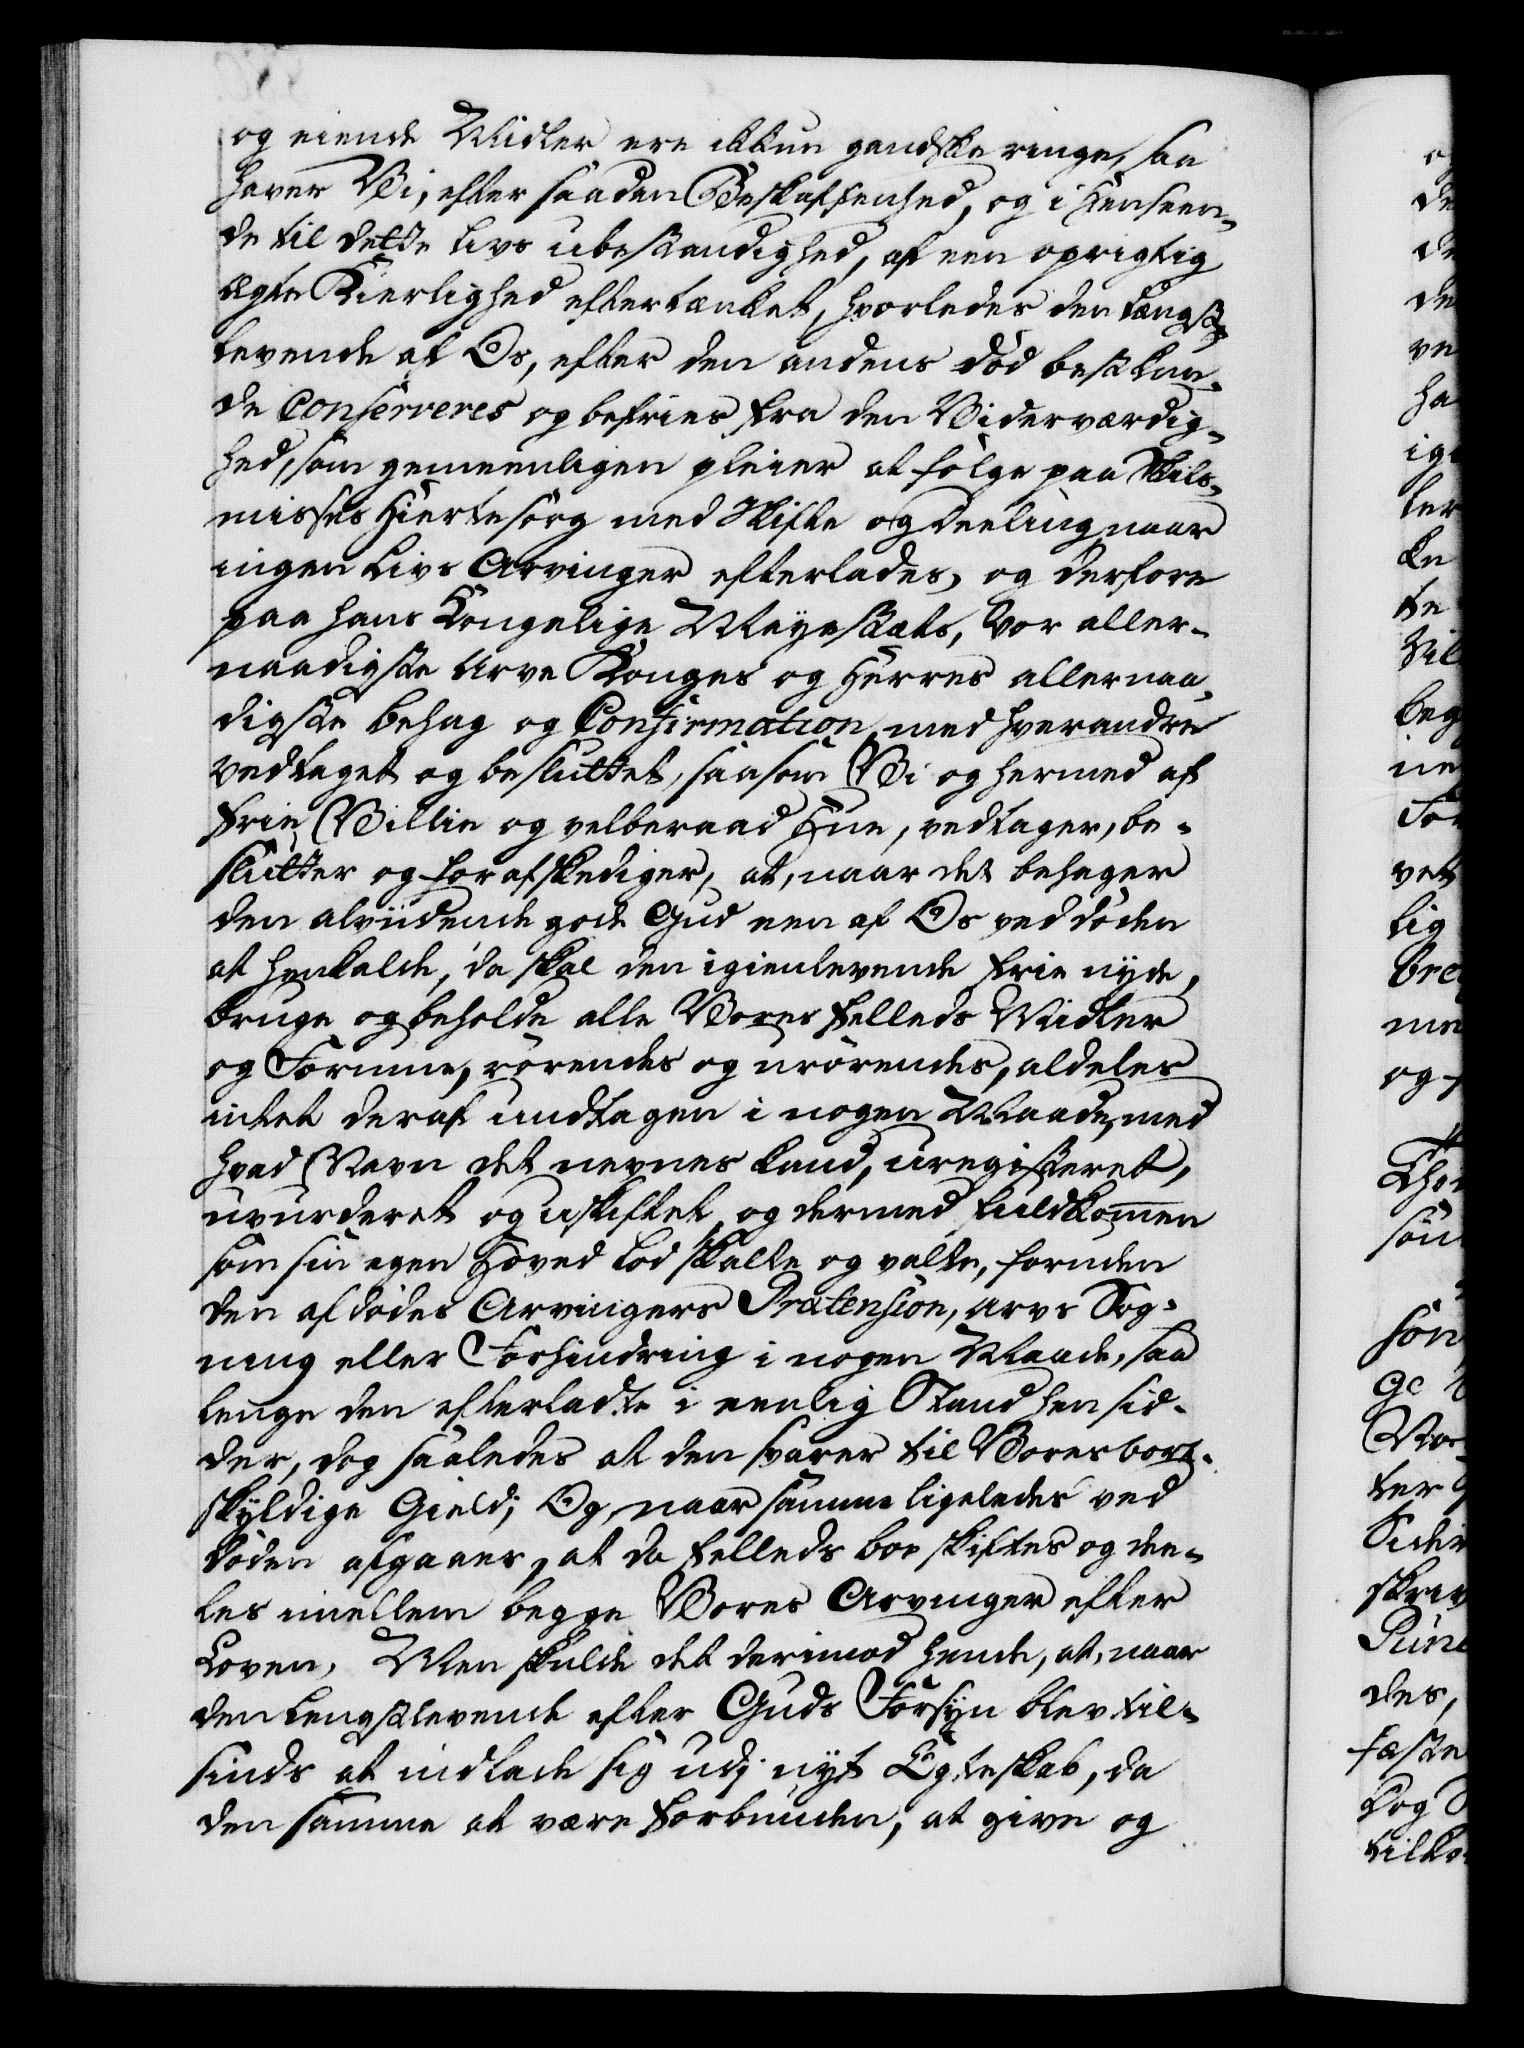 og eiende Midler ere ikkun gandske ringe, saa
haver Vi, efter saadan Beskaffenhed, og i Henseen-
de til dette Livs ubestandighed, af een oprigtig
ægte Kierlighed eftertænket, hvorledes den længst-
levende af Os, efter den andens död best kun-
de Conserveres og befries fra den Viderværdig-
hed, som gemeenligen pleier at følge paa Skils-
misses Hiertesorg med Skifte og deeling, naar
ingen Livs Arvinger efterlades, og derfore
paa hans Kongelige Mayestæts, Vor aller-
naadigste Arve Konges og Herres allernaa-
digste behag og Confirmation, med hverandre
vedtaget og besluttet, saasom Vi og hermed af
frie Villie og velberaad Hue, vedtager, be-
slutter og forafskediger, at, naar det behager
den alviidende gode Gud een af Os ved döden
at henkalde, da skal den igienlevende frie nyde,
bruge og beholde alle Vores Felleds Midler
og Formue, rörendes og urörendes, aldeles
intet deraf undtagen i nogen Maade, med
hvad Navn det nevnes kand, uregisteret,
uvurderet og uskiftet, og dermed fuldkom̅en
som sin egen Hoved Lod skalte og valte, foruden
den afdödes Arvingers Prætension, Arvs Søg-
ning eller Forhindring i nogen Maade, saa
lenge den efterladte i eenlig Stand hen sid-
der, dog saaledes at den svarer til Vores bort-
skyldige Gield; Og, naar samme ligeledes ved
döden afgaaer, at da Felleds boe skiftes og dee-
les imellem begge Vores Arvinger efter
Loven, Men skulde det derimod hende, at, naar
den Lengstlevende efter Guds Forsyn blev til-
sinds at indlade sig udj nyt Egteskab, da
den samme at være forbunden, at give og